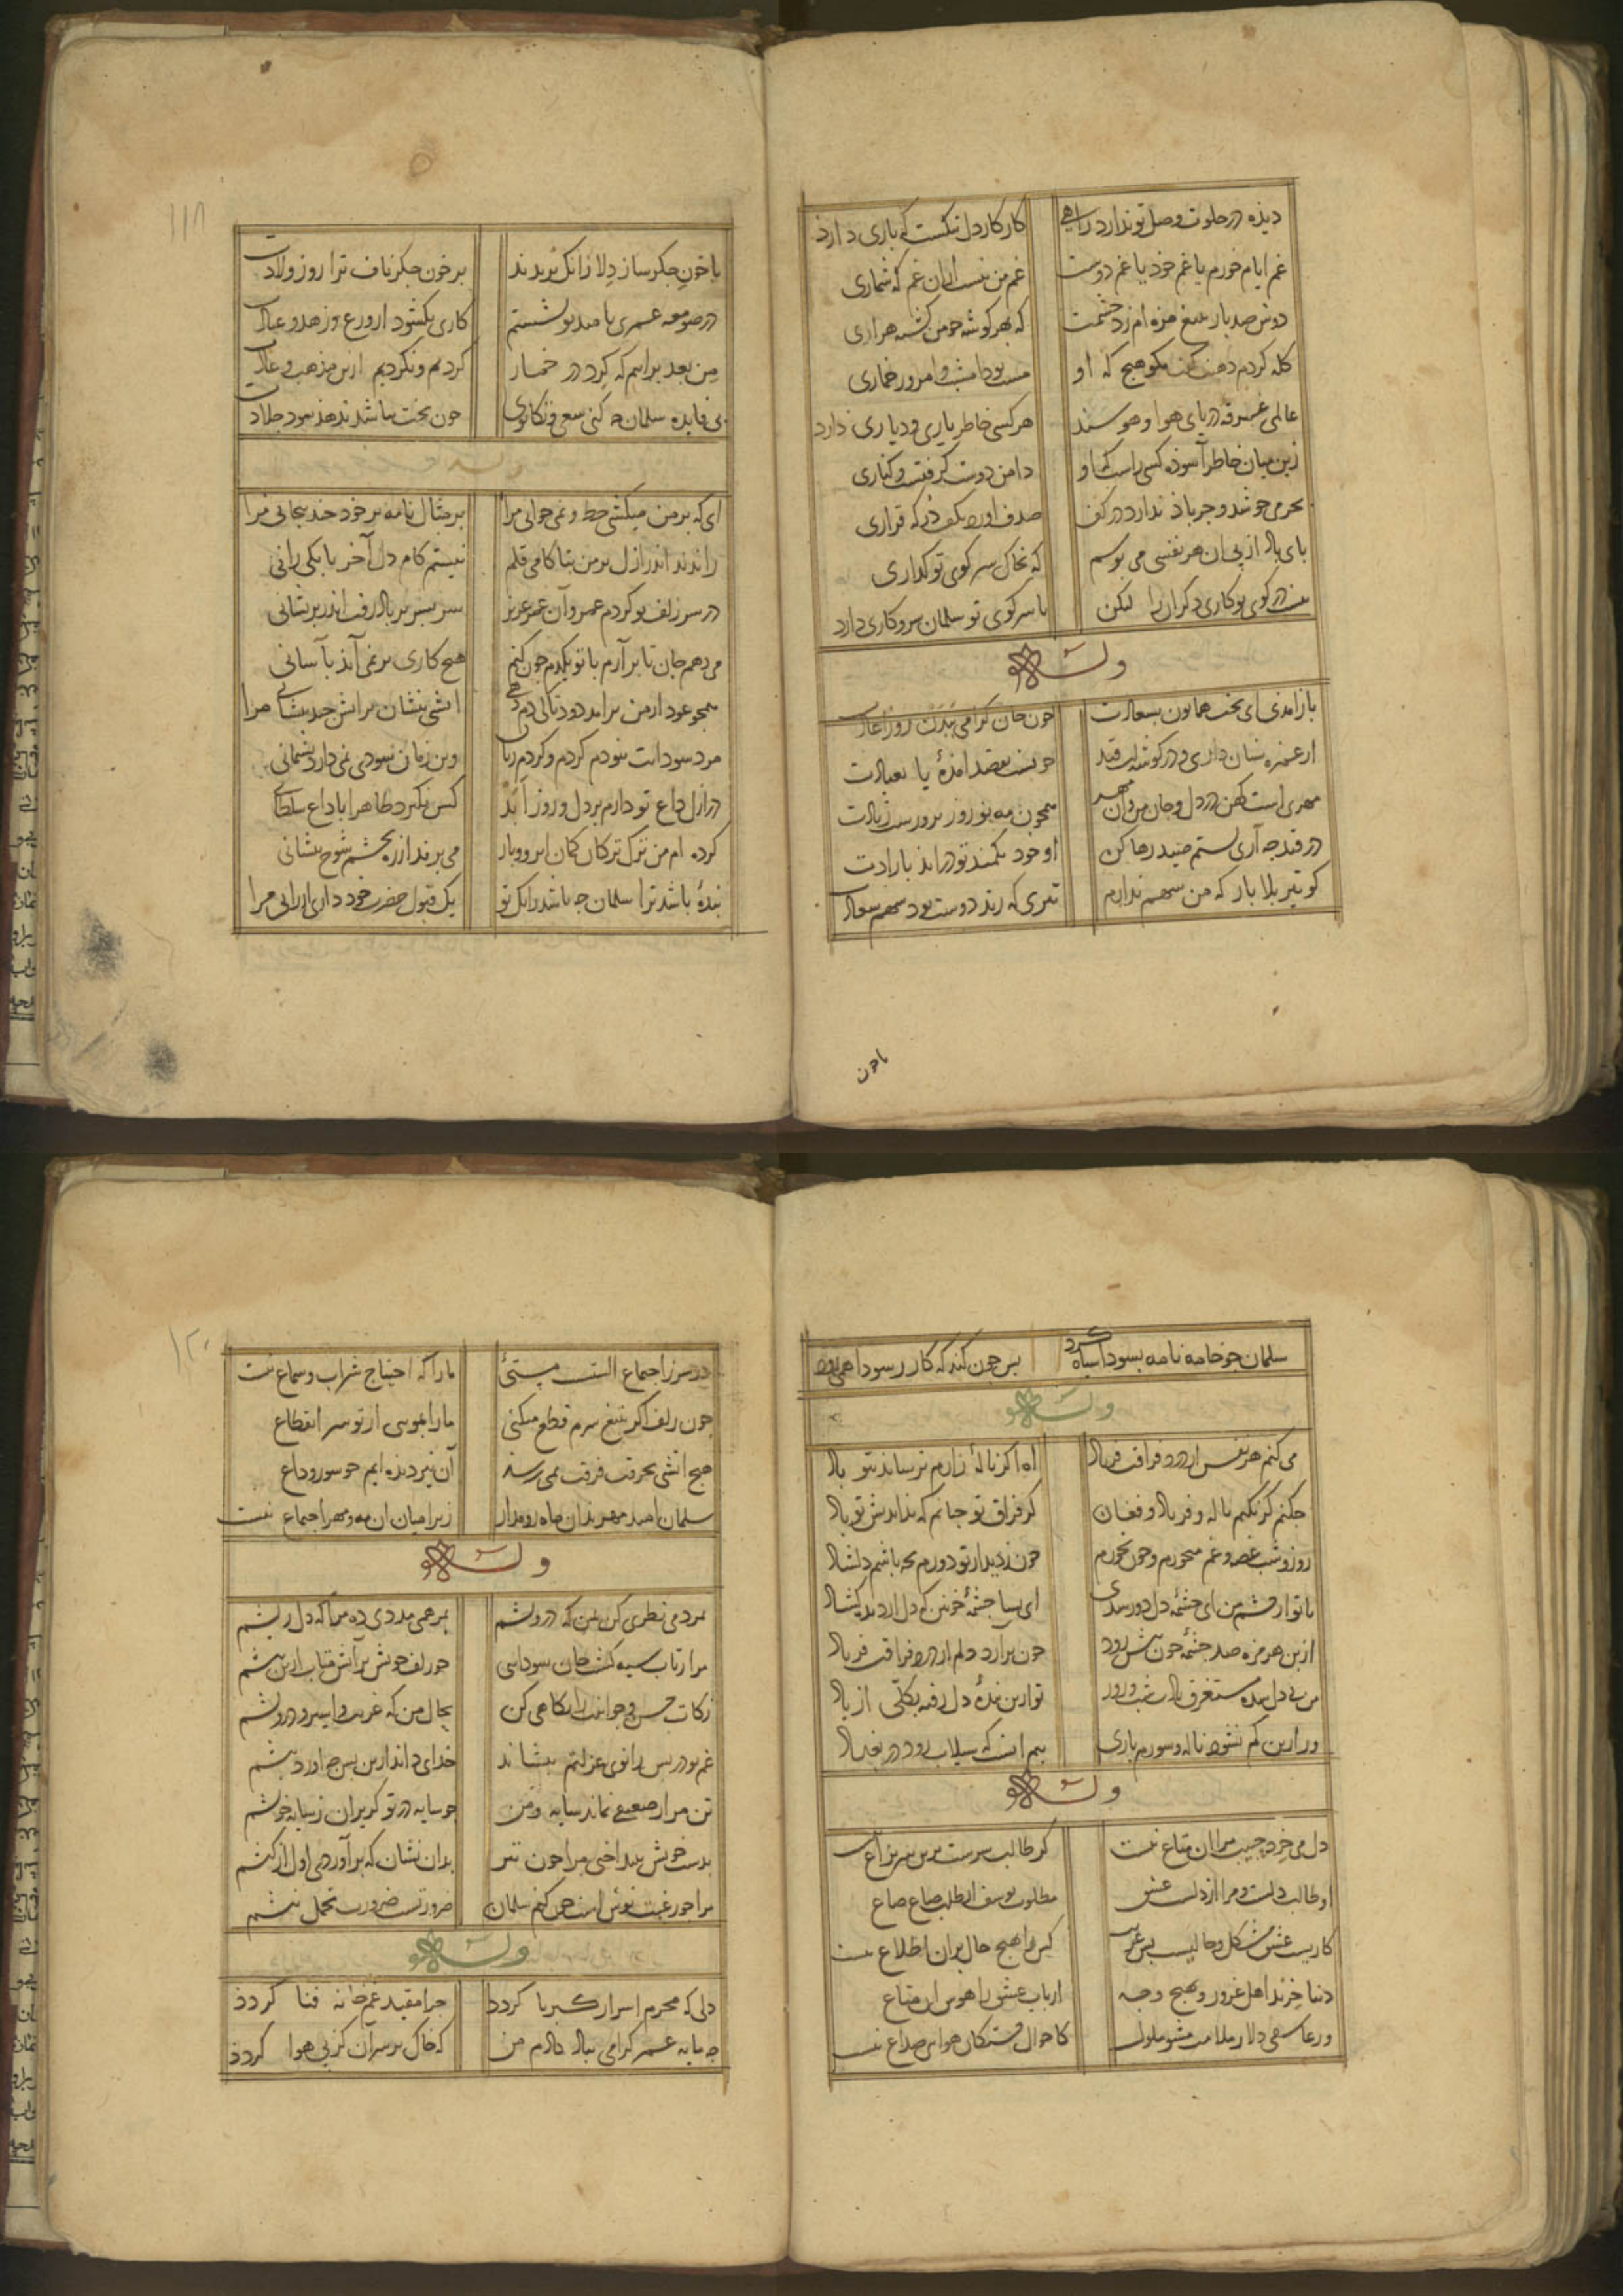 دیذه در خلوت وصل تو ندارد راهی کار کار دل تنکست که باری دارذ
غم ایام خورم یا غم خود یا غم دوست غم من نیست ازان غم که شماری
دوش صد بار بتیغ مزه ام زد چشمت که بهر کوشه چو من کشته هزاری
کله کردم دهنت کفت مکو هیچ که او مست بود امشب و امروز خماری
عالمی غرقه دریای هوا و هوسند هر کسی خاطر یاری و دیاری دارد
زین میان خاطر آسوذه کسی راست که او دامن دوست کرفتست و کناری
بحر می جوشد و جز باذ ندارد در کف صدف اورد بکف در که قراری
بای باد از بی ان هر نفسی می بوسم که بخاک سر کوی تو کذاری
نیست در کوی تو کاری دکرانرا لیکن با سر کوی تو سلمان سر و کاری دارد
وله
باز امدی ای بخت همایون بسعادت چون جان کرامی ببدن روز اعادت
از غمزه سنان داری و در کوشه لب قند چونست بقصد امذهٔ یا بعیادت
مهری است کهن در دل و جان من و آن مهر همچون مه نو روز بروزست زیادت
در قید چه آری بستم صید رها کن او خود بکمند تو دراید بارادت
کو تیر بلا بار که من سهم ندارم تیری که زند دوست بود سهم سعادت
با خون
۱۱۸
با خون جکر ساز دلا زانک بریدند بر خون جکر ناف ترا روز ولادت
در صومعه عمری بامید تو نشستم کاری نکشود از ورع و زهد و عبادت
من بعد برانیم که کرد در خمار کردیم و نکردیم ازین مذهب و عادت
بی فایده سلمان چه کنی سعی و تکابوی چون بخت نباشد ندهذ سود جلادت
وله
ای که بر من میکشی خط و نمی خوانی مرا بر مثال نامه بر خود چند بیجانی مرا
راندند اندر ازل بر من بناکامی قلم نیستم کام دل آخر تا بکی رانی
در سر زلف تو کردم عمر و آن عمر عزیز سر بسر بر باد رفت اندر بریشانی
می دهم جان تا برآرم با تو یکدم چون کنم هیچ کاری بر نمی آید بآسانی
همچو عود از من برامد دود تا کی دم دهی اتشی بنشان بر اتش چند بنشانی مرا
مرد سودایت نبودم کردم و کردم زیان وین زمان سودی نمی دارد بشمانی
در ازل داغ تو دارم بر دل و روز ابد کس نکیرد ظاهرا با داغ سلطانی
کرده ام من ترک ترکان کمان ابرو و باز می برند از ره بجشم شوخ بیشانی
بندهٔ باشد ترا سلمان چه باشد زانک تو یک قبول حضرت خود داری ارزانی مرا
سلمان چو خامه نامه بسودا سیاه کرد بس چون کند که کار بسودا همی رود
وله
می کنم هر نفس از درد فراقت فریاد اه اکر نالهٔ زارم نرساند بتو باد
چکنم کر نکنم ناله و فریاد و فغان کز فراق تو چنانم که بداندیش تو باد
روز و شب غصه و غم میخورم و چون نخورم چون ز دیدار تو دورم بچه باشم دلشاد
تا تو از چشم من ای چشمهٔ دل دور شدی ای بسا چشمهٔ خونین که دل از دیده کشاد
از بن هر مزه صد چشمهٔ خون بیش رود چون برارد دلم از درد فراقت فریاد
من بی دل شده مستغرق یادت شب و روز تو ازین بندهٔ دل رفته بکلی ازاد
ور ازین کم نشود ناله و سوزم باری بیم انست که سیلاب رود در بغداد
وله
دل می خرد حبیب مرا ان متاع نیست کر طالب سرست برین سر نزاع نیست
او طالب دلست و مرا از دلست عشق مطلوب یوسف از طلب صاع صاع
کاریست عشق مشکل و حالیست بس غریب کس را بهیچ حال بران اطلاع نیست
دنیا خرند اهل غرور و بهیچ وجه ارباب عشق را هوس ان متاع
در عاشقی دلا ز ملامت مشو ملول کاحوال خستکان هوا بی صداع نیست
۱۲۰
در سر ز اجماع الست مستئی ما را که احتیاج شراب و سماع نیست
چون زلف اکر بتیغ سرم قطع میکنی ما را بموی از تو سر انقطاع
هیچ اتشی بحرقت فرقت نمی رسد آن نیز دیذه ایم چو سوز وداع
سلمان امید مهر بدان ماه رو مدار زیرا میان ان مه و مهر اجماع نیست
وله
بمردمی نظری کن بمن که درویشم بمرهمی مددی ده مرا که دل ریشم
مرا ز تاب سیه کشت جان سودایی چو زلف خویش بر آتش متاب ازین بیشم
زکات حسن و جوانیت را نکاهی کن بحال من که غریب و اسیر و درویشم
غم تو در بس زانوی عزلتم بنشاند خدای داند ازین بس چه اورد بیشم
تن مرا ز ضعیفی نماند سایه و من چو سایه در تو کریزان ز سایهٔ خویشم
بدست خویش بینداختی مرا چون تیر بدان نشان که برآوردی اول از کیشم
مرا چو رغبت نوش است چون کنم سلمان ضرورتست ضرورت تحمل نیشم
وله
دلی که محرم اسرار کبریا کردد چرا مقید غمخانه فنا کردد
چه مایه عمر کرامی بباد دادم من که خاک بر سر آن کز بی هوا کردد